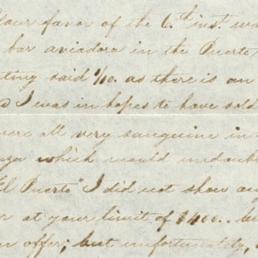 Your favor of the 6th inst. wa
bar aviadora in the Puerto
ting said 1/10. as there is an
I was in hopes to have sold
were all very sanguine in
which would undoub
El Puerto" I did not show any
at your limit of $400..
n offer; but unfortunately,